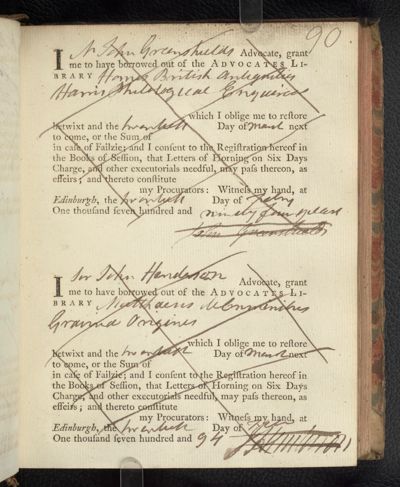 90
I Mr John Greenshields Advocate, grant
me to have borrowed out of the ADVOCATES LI-
BRARY Homes British Antiquities
Harris Philological Enquiries
which I oblige me to reſtore
betwixt and the twentieth Day of March next
to come, or the Sum of
in caſe of Failzie; and I conſent to the Regiſtration hereof in
the Books of Seſſion, that Letters of Horning on Six Days
Charge, and other executorials needful, may paſs thereon, as
effeirs; and thereto conſtitute
my Procurators: Witneſs my hand, at
Edinburgh, the twentieth Day of febry
One thouſand ſeven hundred and ninety four years
John Greenshields
I Sir John Henderson Advocate, grant
me to have borrowed out of the ADVOCATES LI-
BRARY Matthaeus
Origines
which I oblige me to reſtore
betwixt and the twentieth Day of March next
to come, or the Sum of
in caſe of Failzie; and I conſent to the Regiſtration hereof in
the Books of Seſſion, that Letters of Horning on Six Days
Charge, and other executorials needful, may paſs thereon, as
effeirs; and thereto conſtitute
my Procurators: Witneſs my hand, at
Edinburgh, the twentieth Day of
One thouſand ſeven hundred and 94